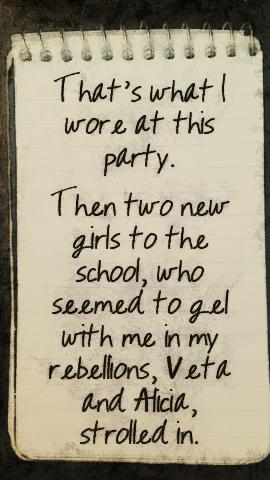 That's what I
wore at this
party.
Then two new
girls to the
school, who
seemed to gel
with me in my
rebellions, Veta
and Alicia,
strolled in.